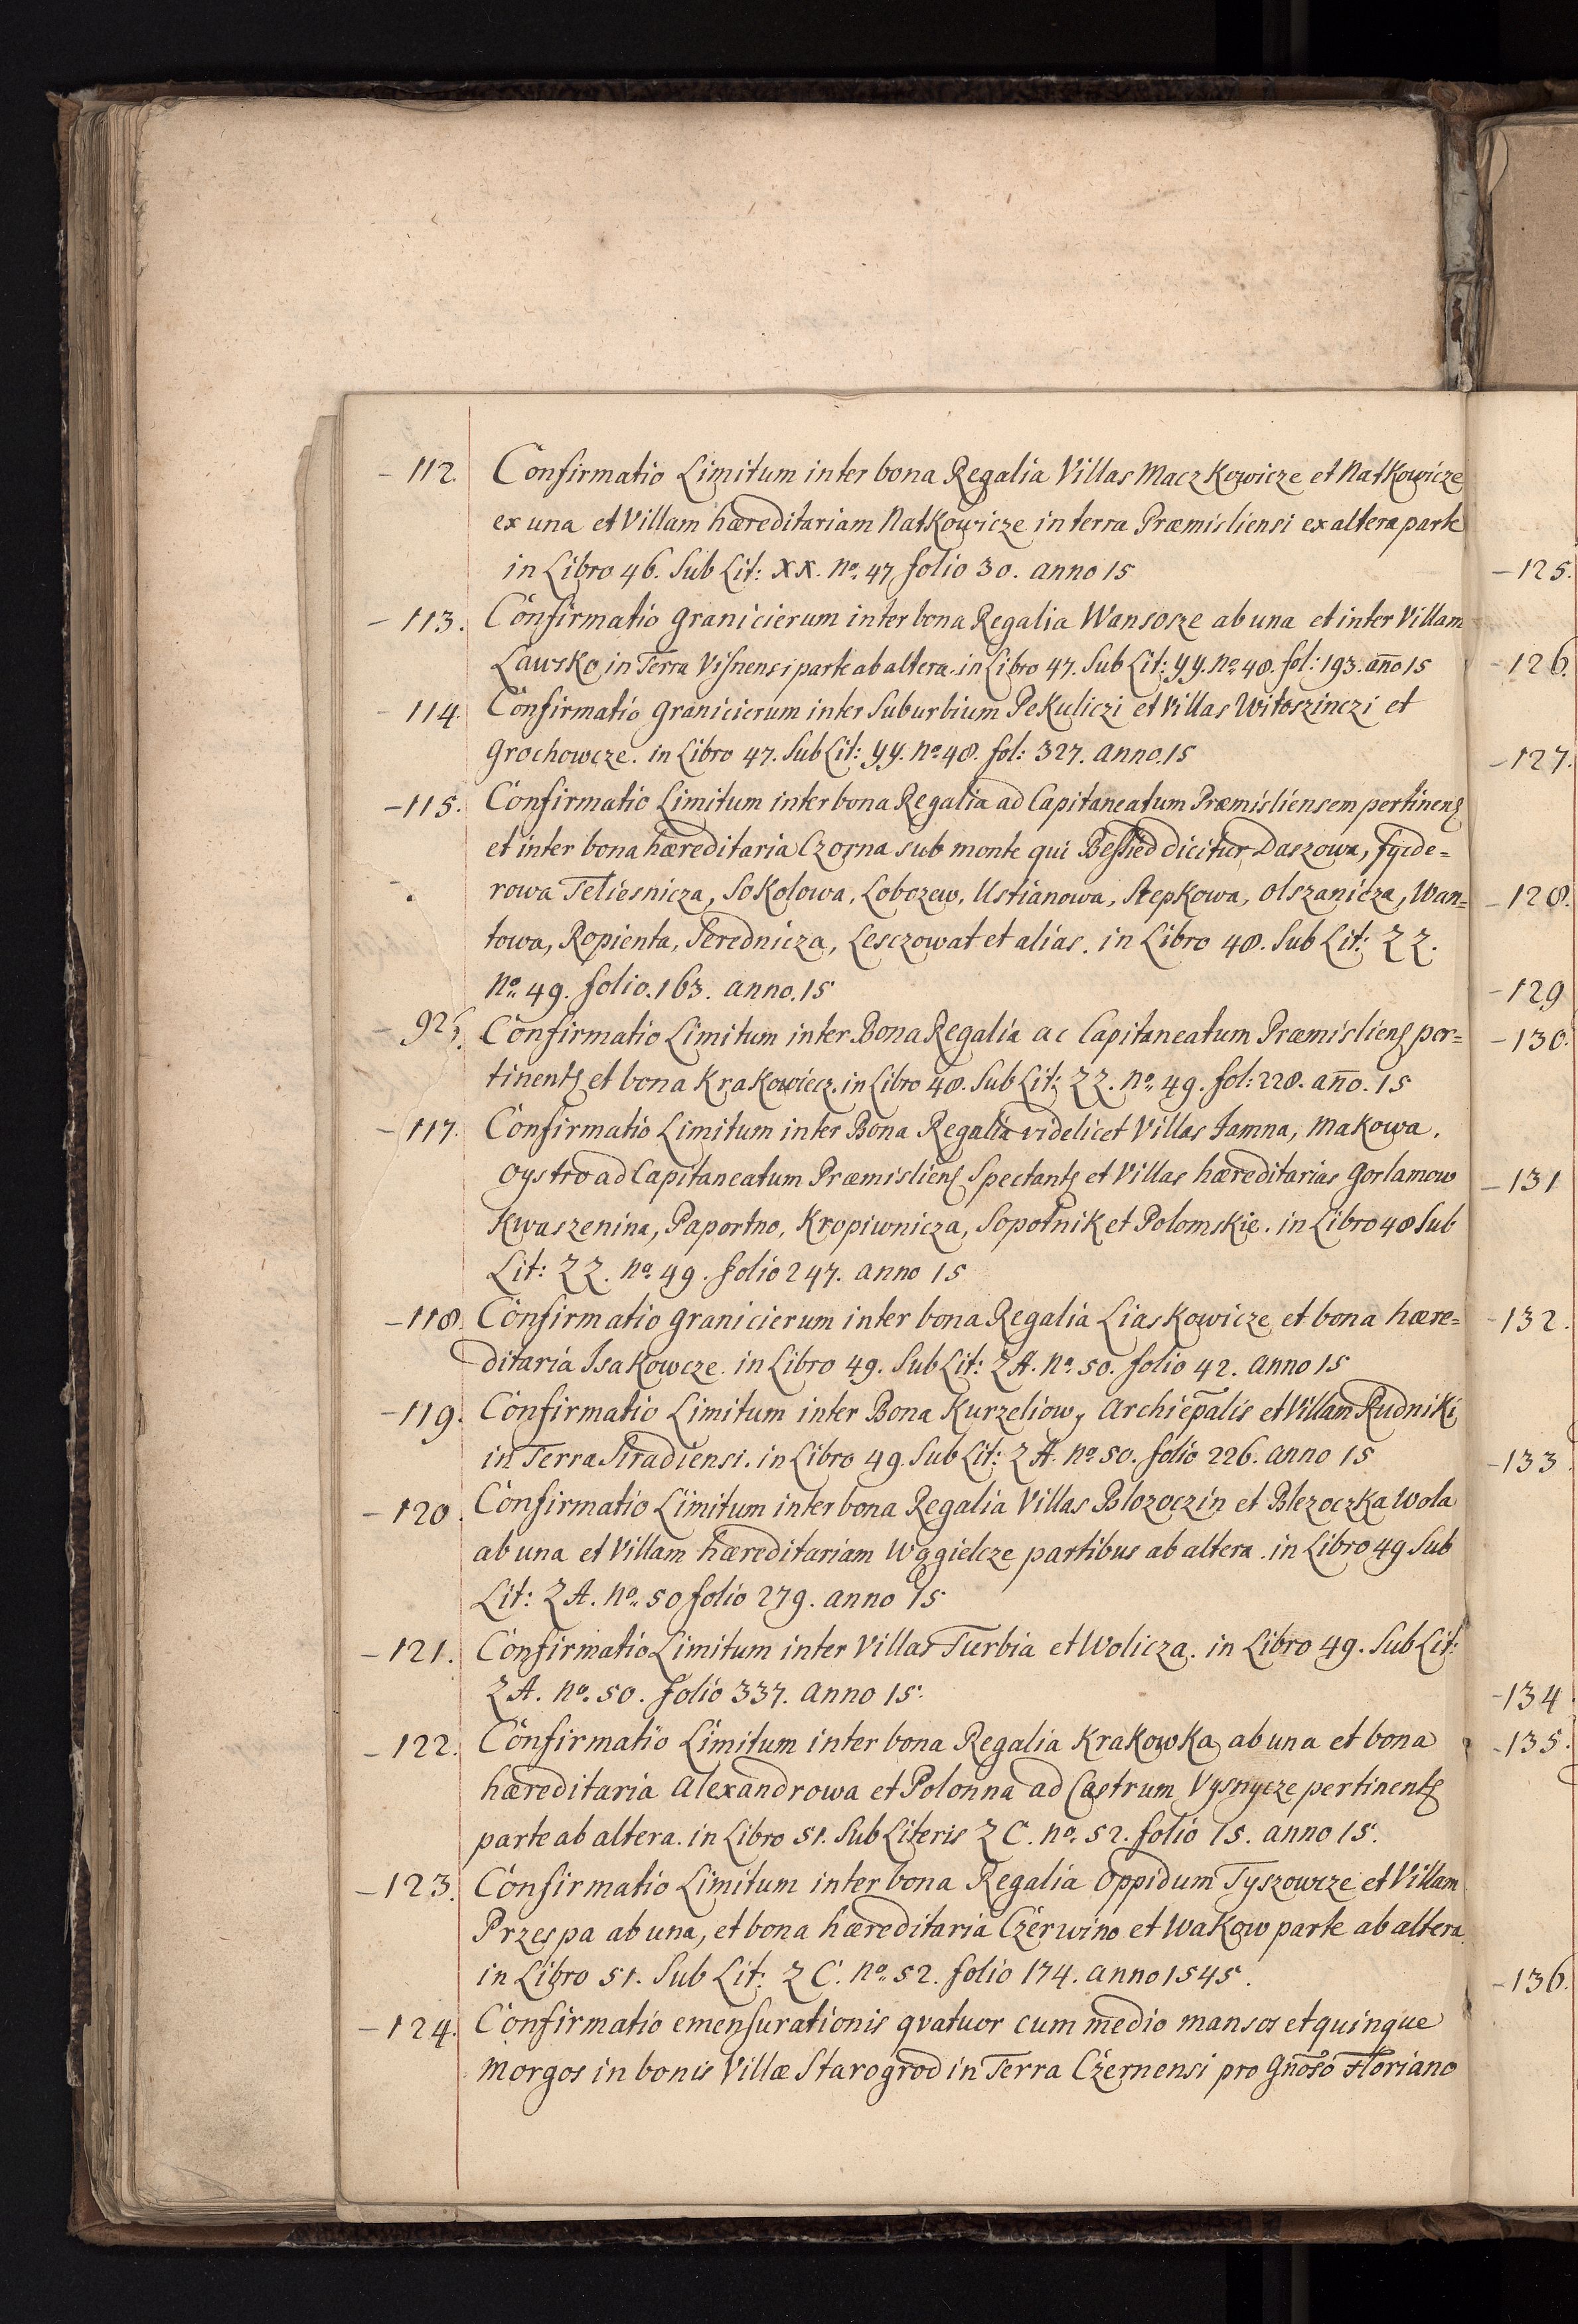 - 112. Confirmatio Limitum inter bona Regalia Villas Maczkowicze et Natkowicze
ex una et Villam hæreditariam Natkowicze in terra Præmisliensi ex altera parte
in Libro 46. Sub Lit: XX. No. 47 folio 30. anno 15
- 113. Confirmatio Granicierum inter bona Regalia Wansosze ab una et inter Villam
Lawsko in Terra Visnensi parte ab altera. in Libro 47. Sub Lit: yy. No. 48. fol: 193. año 15
- 114. Confirmatio Granicierum inter Suburbium Pekuliczi et Villas Witoszinczi et
Grochowcze. in Libro 47. Sub Lit: yy. No 48. fol: 327. anno. 15
- 115. Confirmatio Limitum inter bona Regalia ad Capitaneatum Præmisliensem pertinenȝ
et inter bona hæreditaria Czorna sub monte qui Bessied dicitur Daszowa, fyede=
rowa Teliesnicza, Sokolowa, Lobozew, Ustianowa, Stepkowa, Olszanicza, Wan=
towa, Ropienta, Serednicza, Lesczowat et alias. in Libro 48. Sub Lit: ZZ.
No. 49. folio. 163. anno. 15
- 92. Confirmatio Limitum inter Bona Regalia ac Capitaneatum Præmislienȝ per=
tinentȝ et bona Krakowiecz. in Libro 48. Sub Lit: ZZ. No. 49. fol: 228. año. 15
- 117. Confirmatio Limitum inter Bona Regalia videlicet Villas Jamna, Makowa,
Oystro ad Capitaneatum Præmislienȝ Spectantȝ et Villas hæreditarias Gorlamow
Kwaszenina, Paportno, Kropiwnicza, Sopotnik et Polomskie. in Libro 48 Sub
Lit: ZZ. No. 49. folio 247. anno 15
- 118. Confirmatio Granicierum inter bona Regalia Liaskowicze et bona hære=
ditaria Isakowcze. in Libro 49. Sub Lit: ZA. No. 50. folio 42. anno 15
- 119. Confirmatio Limitum inter Bona Kurzeliow, Archiepālis et Villam Rudniki
in Terra Siradiensi. in Libro 49. Sub Lit: ZA. No 50. folio 226. anno 15
- 120. Confirmatio Limitum inter bona Regalia Villas Blozoczin et Blezoczka Wola
ab una et Villam hæreditariam Wągielcze partibus ab altera. in Libro 49 Sub
Lit: ZA. No. 50 folio 279. anno 15
- 121. Confirmatio Limitum inter Villas Turbia et Wolicza. in Libro 49. Sub Lit:
ZA. No. 50. folio 337. anno 15.
- 122. Confirmatio Limitum inter bona Regalia Krakowka ab una et bona
hæreditaria Alexandrowa et Polonna ad Castrum Vysnycze pertinentȝ
parte ab altera. in Libro 51. Sub Literis ZC. No. 52. folio 15. anno 15.
- 123. Confirmatio Limitum inter bona Regalia Oppidum Tyszowcze et Villam
Przespa ab una, et bona hæreditaria Czerwino et Wakow parte ab altera
in Libro 51. Sub Lit: ZC. No. 52. folio 174. anno 1545.
- 124. Confirmatio emensurationis qvatuor cum medio mansos et quinque
morgos in bonis Villæ Starogrod in Terra Czernensi pro Gñoso Floriano
- 125.
- 126.
- 127.
- 128.
- 129
- 130.
- 131
- 132.
- 133
- 134
- 135.
- 136.